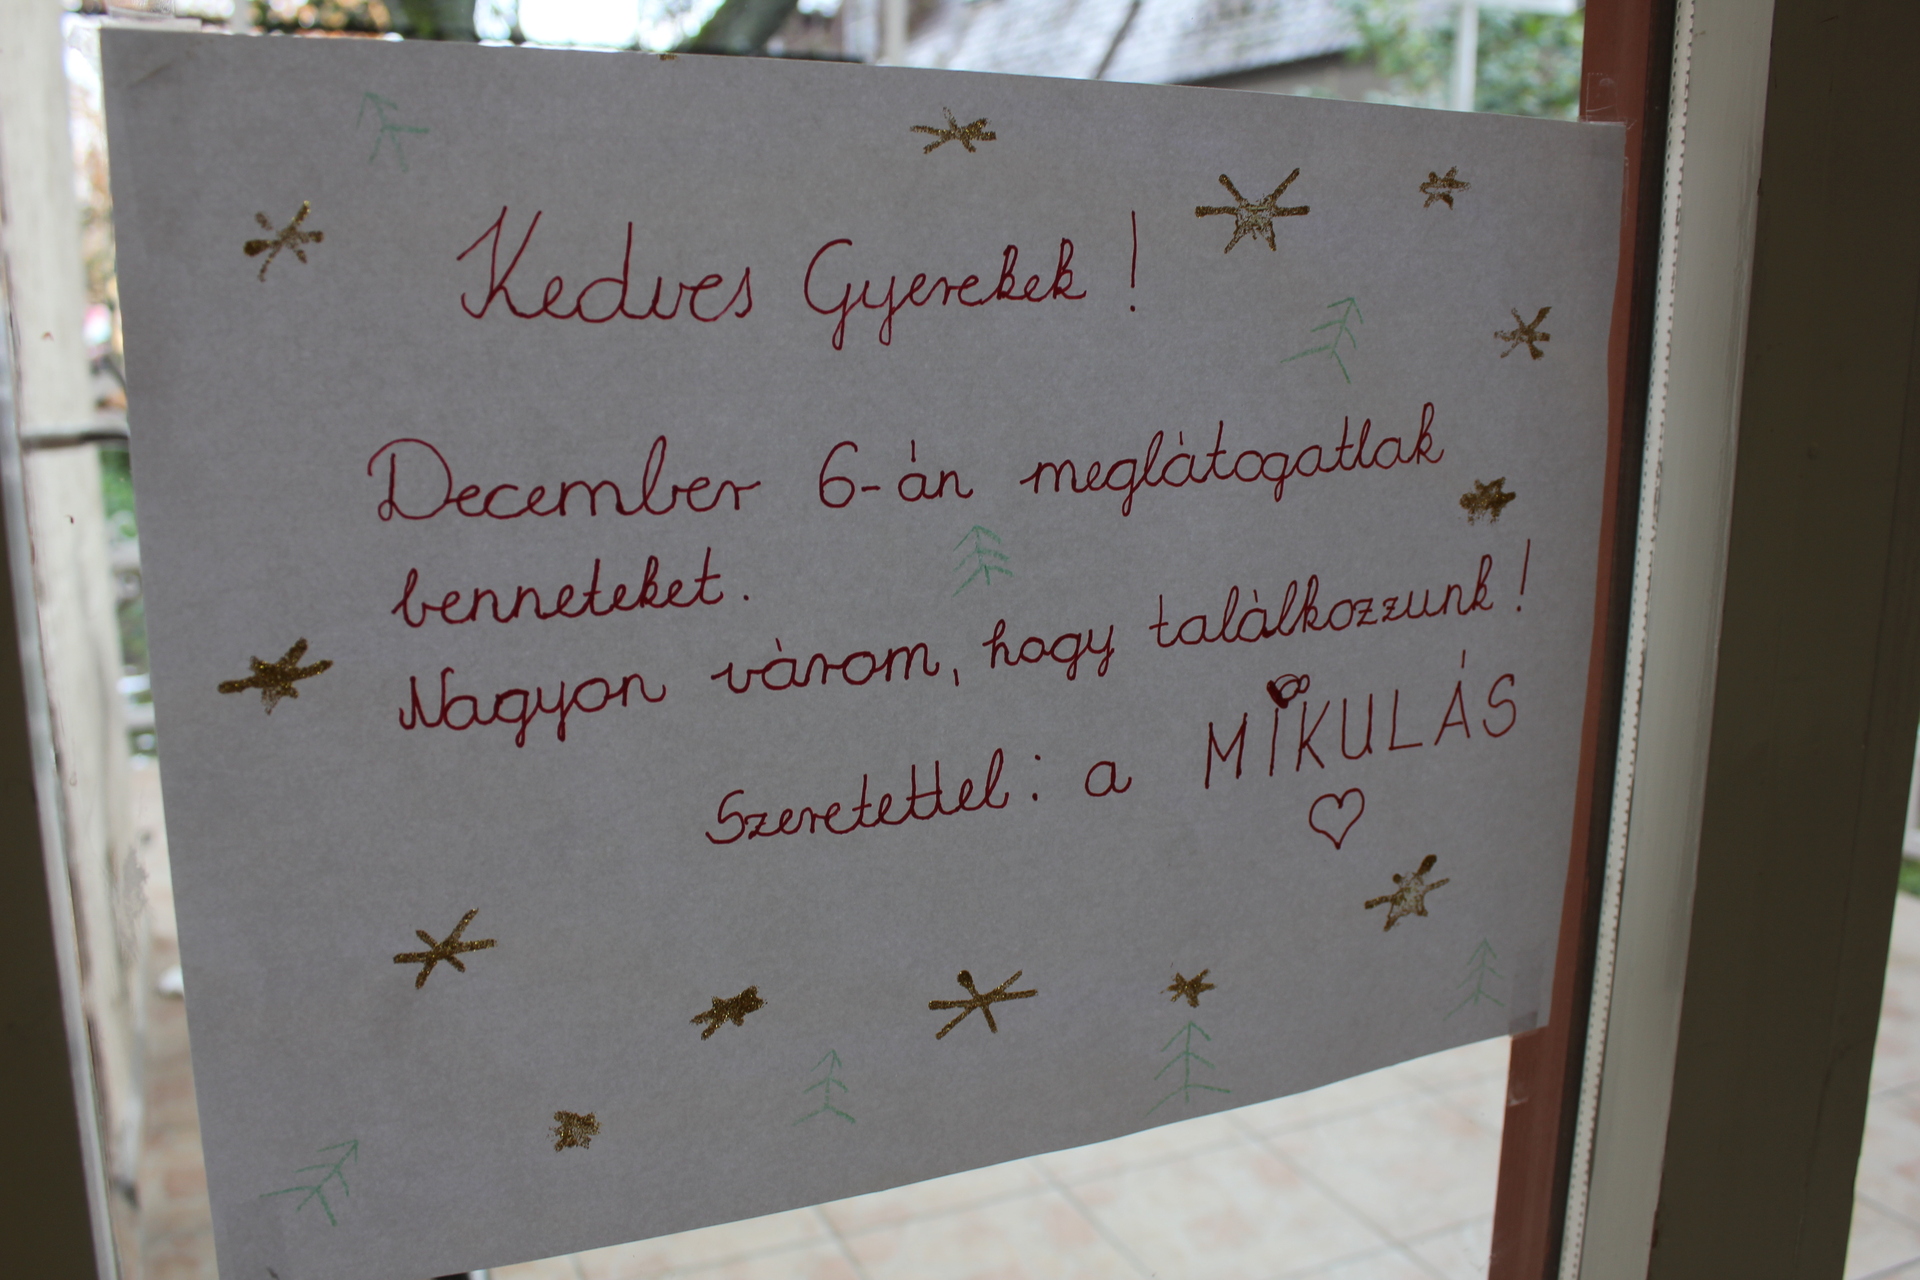 Kedves Gyerekek!
December 6-án meglátogatlak
benneteket.
Nagyon várom, hogy találkozzunk!
Szeretettel: a MIKULÁS